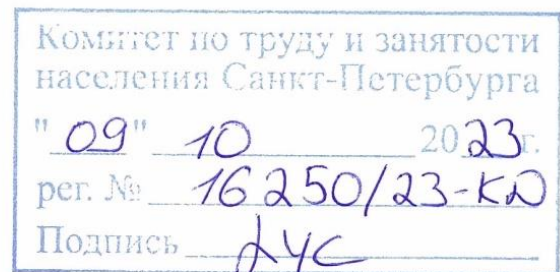 Комитет по труду и занятости
населения Санкт-Петербурга
"09" 10 2023г.
рег. № 16250/23-КД
Подпись